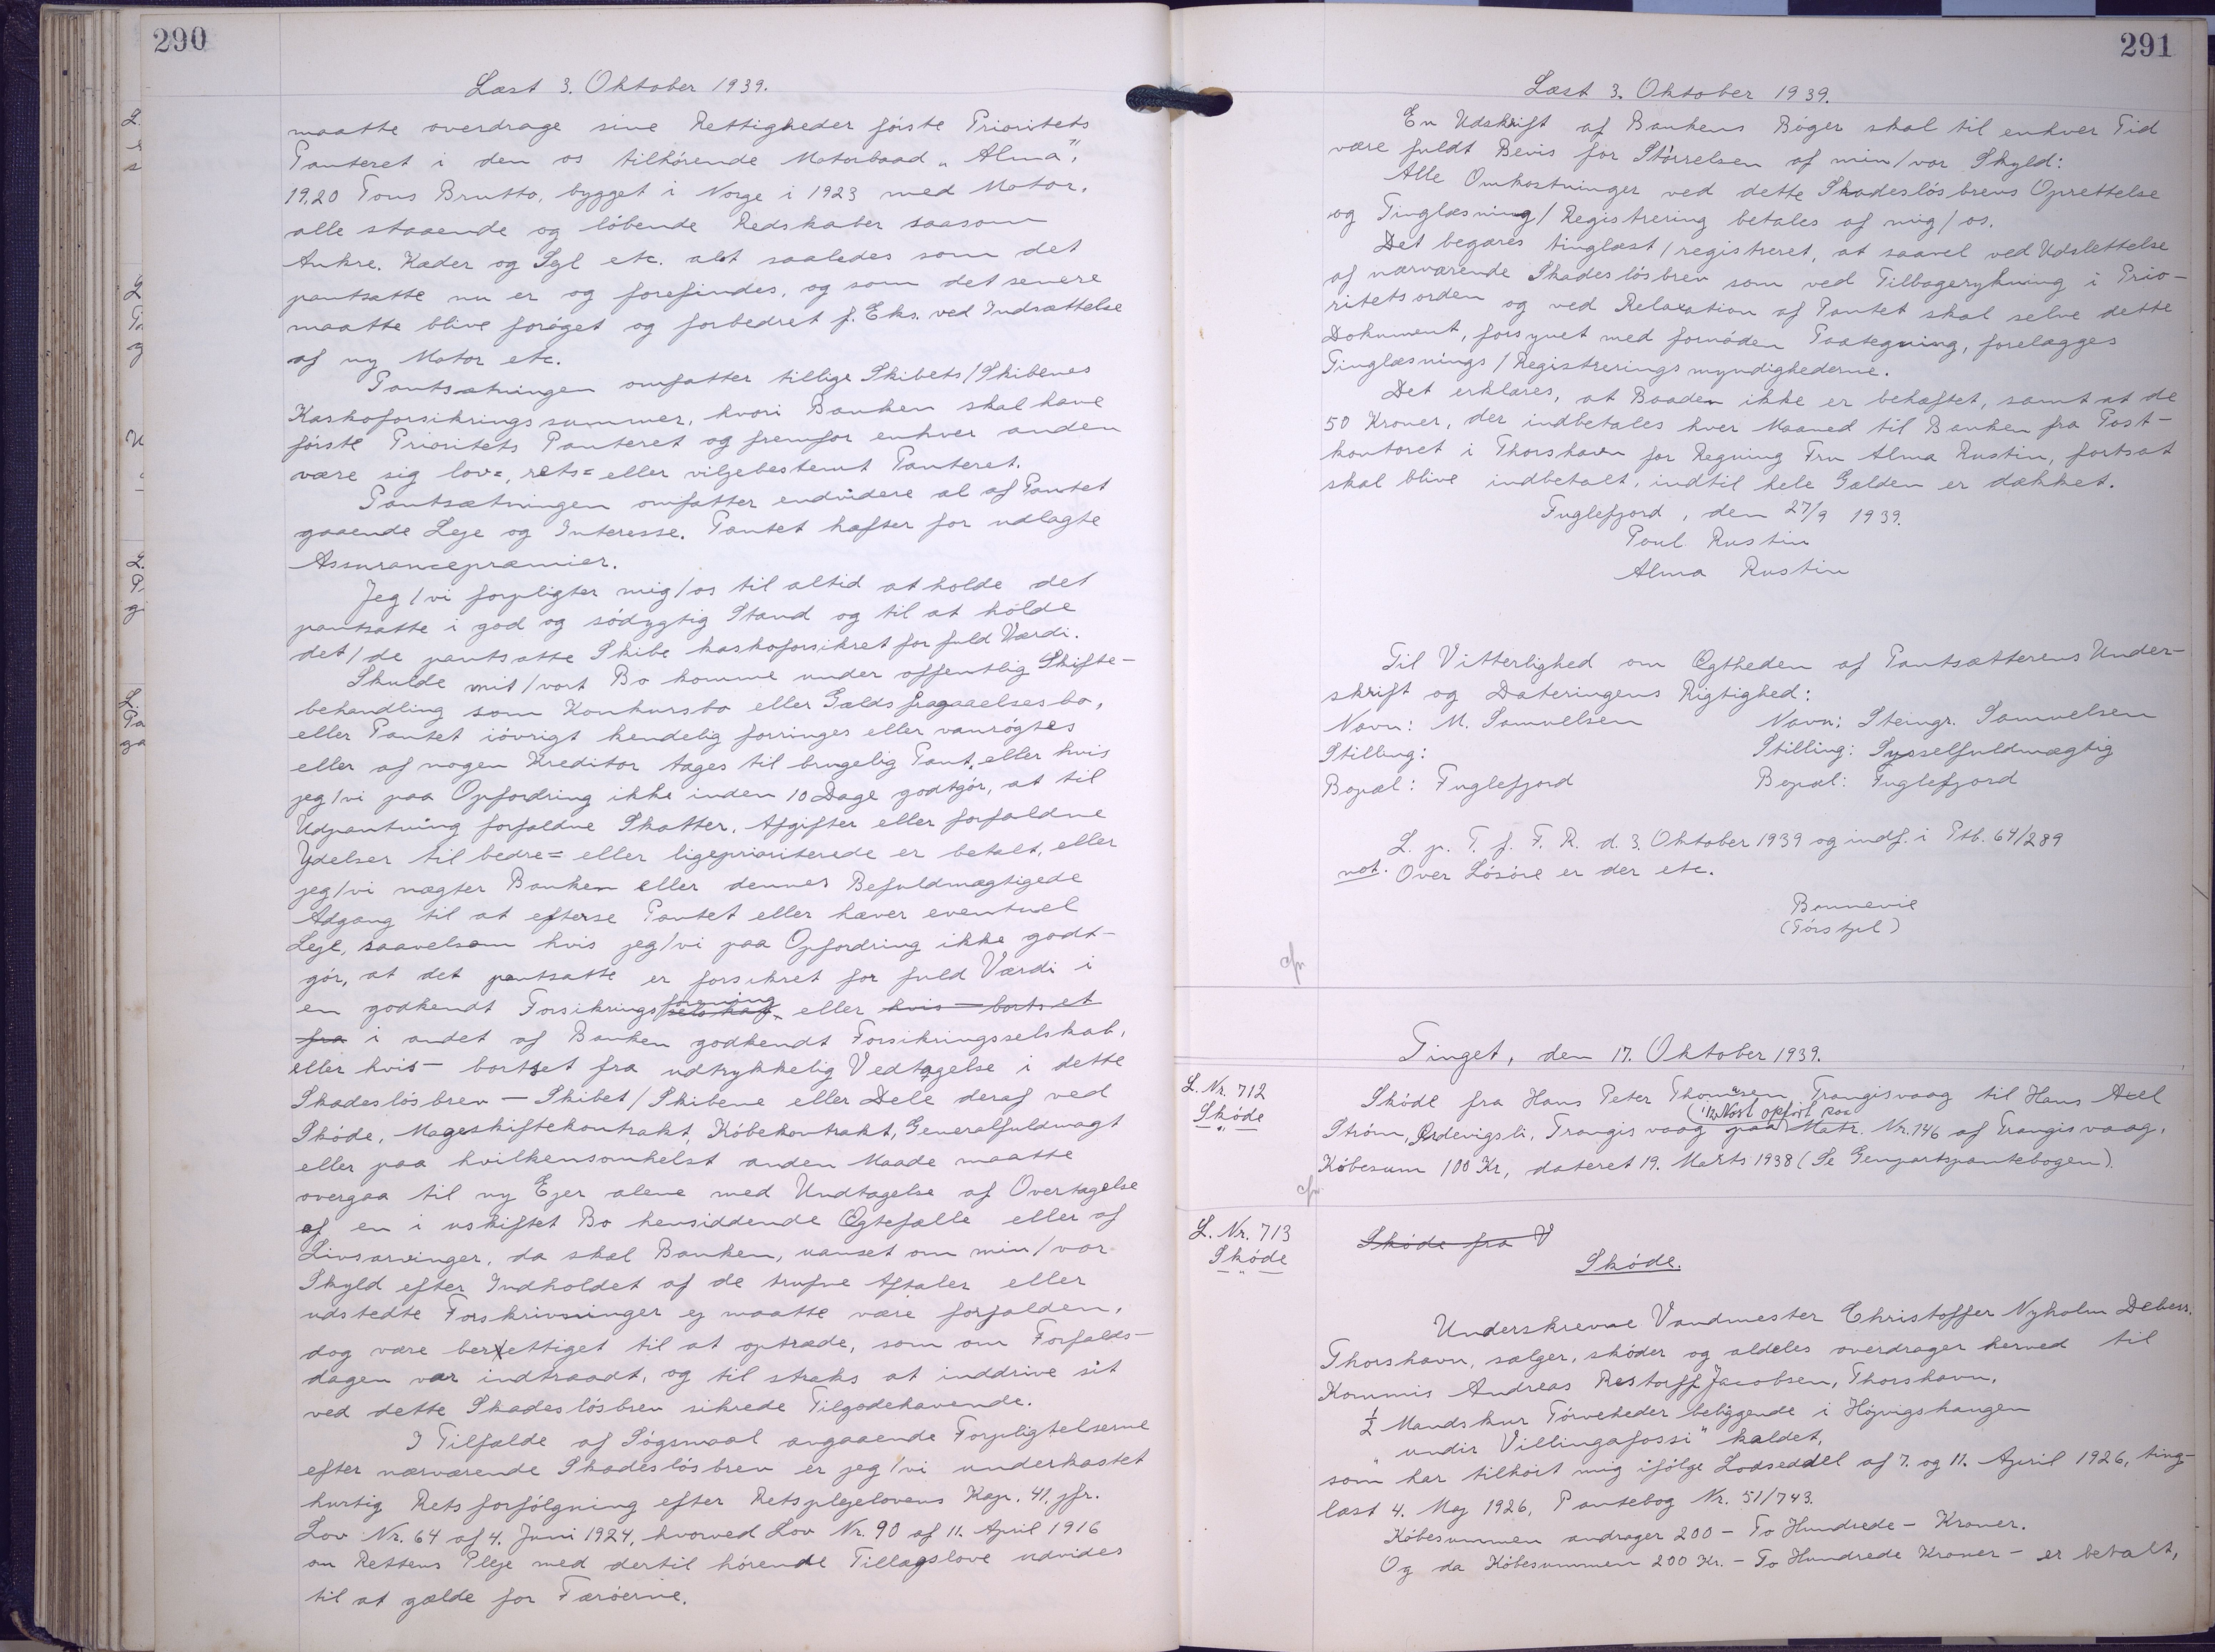 290
Læst 3. Oktober 1939.
maatte overdrage sine Rettigheder første Prioritets
Panteret i den os tilhørende Motorbaad „Alma",
19,20 Tons Brutto, bygget i Norge i 1923 med Motor,
alle staaende og løbende Redskaber saasom
Ankre, Kæder og Sejl etc. alt saaledes som det
pantsatte nu er og forefindes, og som det senere
maatte blive forøget og forbedret f. Eks. ved Indsættelse
af ny Motor etc.
Pantsætningen omfatter tillige Skibets/Skibenes
Kaskoforsikringssummer, hvori Banken skal have
første Prioritets Panteret og fremfor enhver anden
være sig lov=, rets= eller viljebestemt Panteret.
Pantsætningen omfatter endvidere al af Pantet
gaaende Leje og Interesse. Pantet hæfter for udlagte
Assurancepræmier.
Jeg/vi forpligter mig/os til altid at holde det
pantsatte i god og sødygtig Stand og til at holde
det/de pantsatte Skibe kaskoforsikret for fuld Værdi.
Skulde mit/vort Bo komme under offentlig Skifte-
behandling som Konkursbo eller Gælds fragaaelsesbo,
eller Pantet iøvrigt kendelig forringes eller vanrøgtes
eller af nogen Kreditor tages til brugelig Pant, eller hvis
jeg/vi paa Opfordring ikke inden 10 Dage godtgør, at til
Udpantning forfaldne Skatter, Afgifter eller forfaldne
Ydelser til bedre= eller ligeprioriterede er betalt, eller
jeg/vi nægter Banken eller dennes Befuldmægtigede
Adgang til at efterse Pantet eller hæver eventuel
Leje, saavelsom hvis jeg/vi paa Opfordring ikke godt-
gør, at det pantsatte er forsikret for fuld Værdi i
en godkendt Forsikringsforening selskab, eller hvis — bortset
fra i andet af Banken godkendt Forsikringsselskab,
eller hvis — bortset fra udtrykkelig Vedtagelse i dette
Skadesløsbrev — Skibet/Skibene eller Dele deraf ved
Skøde, Mageskiftekontrakt, Købekontrakt, Generalfuldmagt
eller paa hvilkensomhelst anden Maade maatte
overgaa til ny Ejer alene med Undtagelse af Overtagelse
af en i uskiftet Bo hensiddende Ægtefælle eller af
Livsarvinger, da skal Banken, uanset om min/vor
Skyld efter Indholdet af de trufne Aftaler eller
udstedte Forskrivninger ej maatte være forfalden,
dog være berettiget til at optræde, som om Forfalds-
dagen var indtraadt, og til straks at inddrive sit
ved dette Skadesløsbrev sikrede Tilgodehavende.
I Tilfælde af Søgsmaal angaaende Forpligtelserne
efter nærværende Skadesløsbrev er jeg/vi underkastet
hurtig Retsforfølgning efter Retsplejelovens Kap. 41, jfr.
Lov Nr. 64 af 4. Juni 1924, hvorved Lov Nr. 90 af 11. April 1916
om Rettens Pleje med dertil hørende Tillægslove udvides
til at gælde for Færøerne.
291
Læst 3. Oktober 1939.
En Udskrift af Bankens Bøger skal til enhver Tid
være fuldt Bevis for Størrelsen af min/vor Skyld:
Alle Omkostninger ved dette Skadesløsbrevs Oprettelse
og Tinglæsning/Registrering betales af mig/os.
Det begæres tinglæst/registreret, at saavel ved Udslettelse
af nærværende Skadesløsbrev som ved Tilbagerykning i Prio-
ritetsorden og ved Relaxation af Pantet skal selve dette
Dokument, forsynet med fornøden Paategning, forelægges
Tinglæsnings/Registreringsmyndighederne.
Det erklæres, at Baaden ikke er behæftet, samt at de
50 Kroner, der indbetales hver Maaned til Banken fra Post-
kontoret i Thorshavn for Regning Fru Alma Rustin, fortsat
skal blive indbetalt, indtil hele Gælden er dækket.
Fuglefjord, den 27/9 1939.
Poul Rustin
Alma Rustin
Til Vitterlighed om Ægtheden af Pantsætterens Under-
skrift og Dateringens Rigtighed:
Navn: M. Samuelsen Navn: Steingr. Samuelsen
Stilling: Stilling: Sysselfuldmægtig
Bopæl: Fuglefjord Bopæl: Fuglefjord
L. p. T. f. F. R. d. 3. Oktober 1939 og indf. i Ptb. 64/289
not. Over Løsøre er der etc.
Bonnevie
Tinget, den 17. Oktober 1939.
L. Nr. 712
Skøde
Skøde fra Hans Peter Thomasen Trangisvaag til Hans Axel
(1/12 Nost opført paa
Strøm, Ørdevigsli, Trangisvaag paa Matr. Nr. 146 af Trangisvaag,
Købesum 100 Kr, dateret 19. Marts 1938 (Se Genpartspantebogen).
L. Nr. 713
Skøde
Skøde fra V
Skøde.
Underskrevne Vandmester Christoffer Nyholm Debess,
Thorshavn, sælger, skøder og aldeles overdrager herved til
Kommis Andreas Restorff Jacobsen, Thorshavn,
1/2 Mandskur Tørveheder beliggende i Hojvigshaugen
„undir Villingafossi" kaldet,
som har tilhørt mig ifølge Lodseddel af 7. og 11. April 1926, ting-
læst 4. Maj 1926, Pantebog Nr. 51/743.
Købesummen andrager 200 — To Hundrede — Kroner.
Og da Købesummen 200 Kr. — To Hundrede Kroner — er betalt,